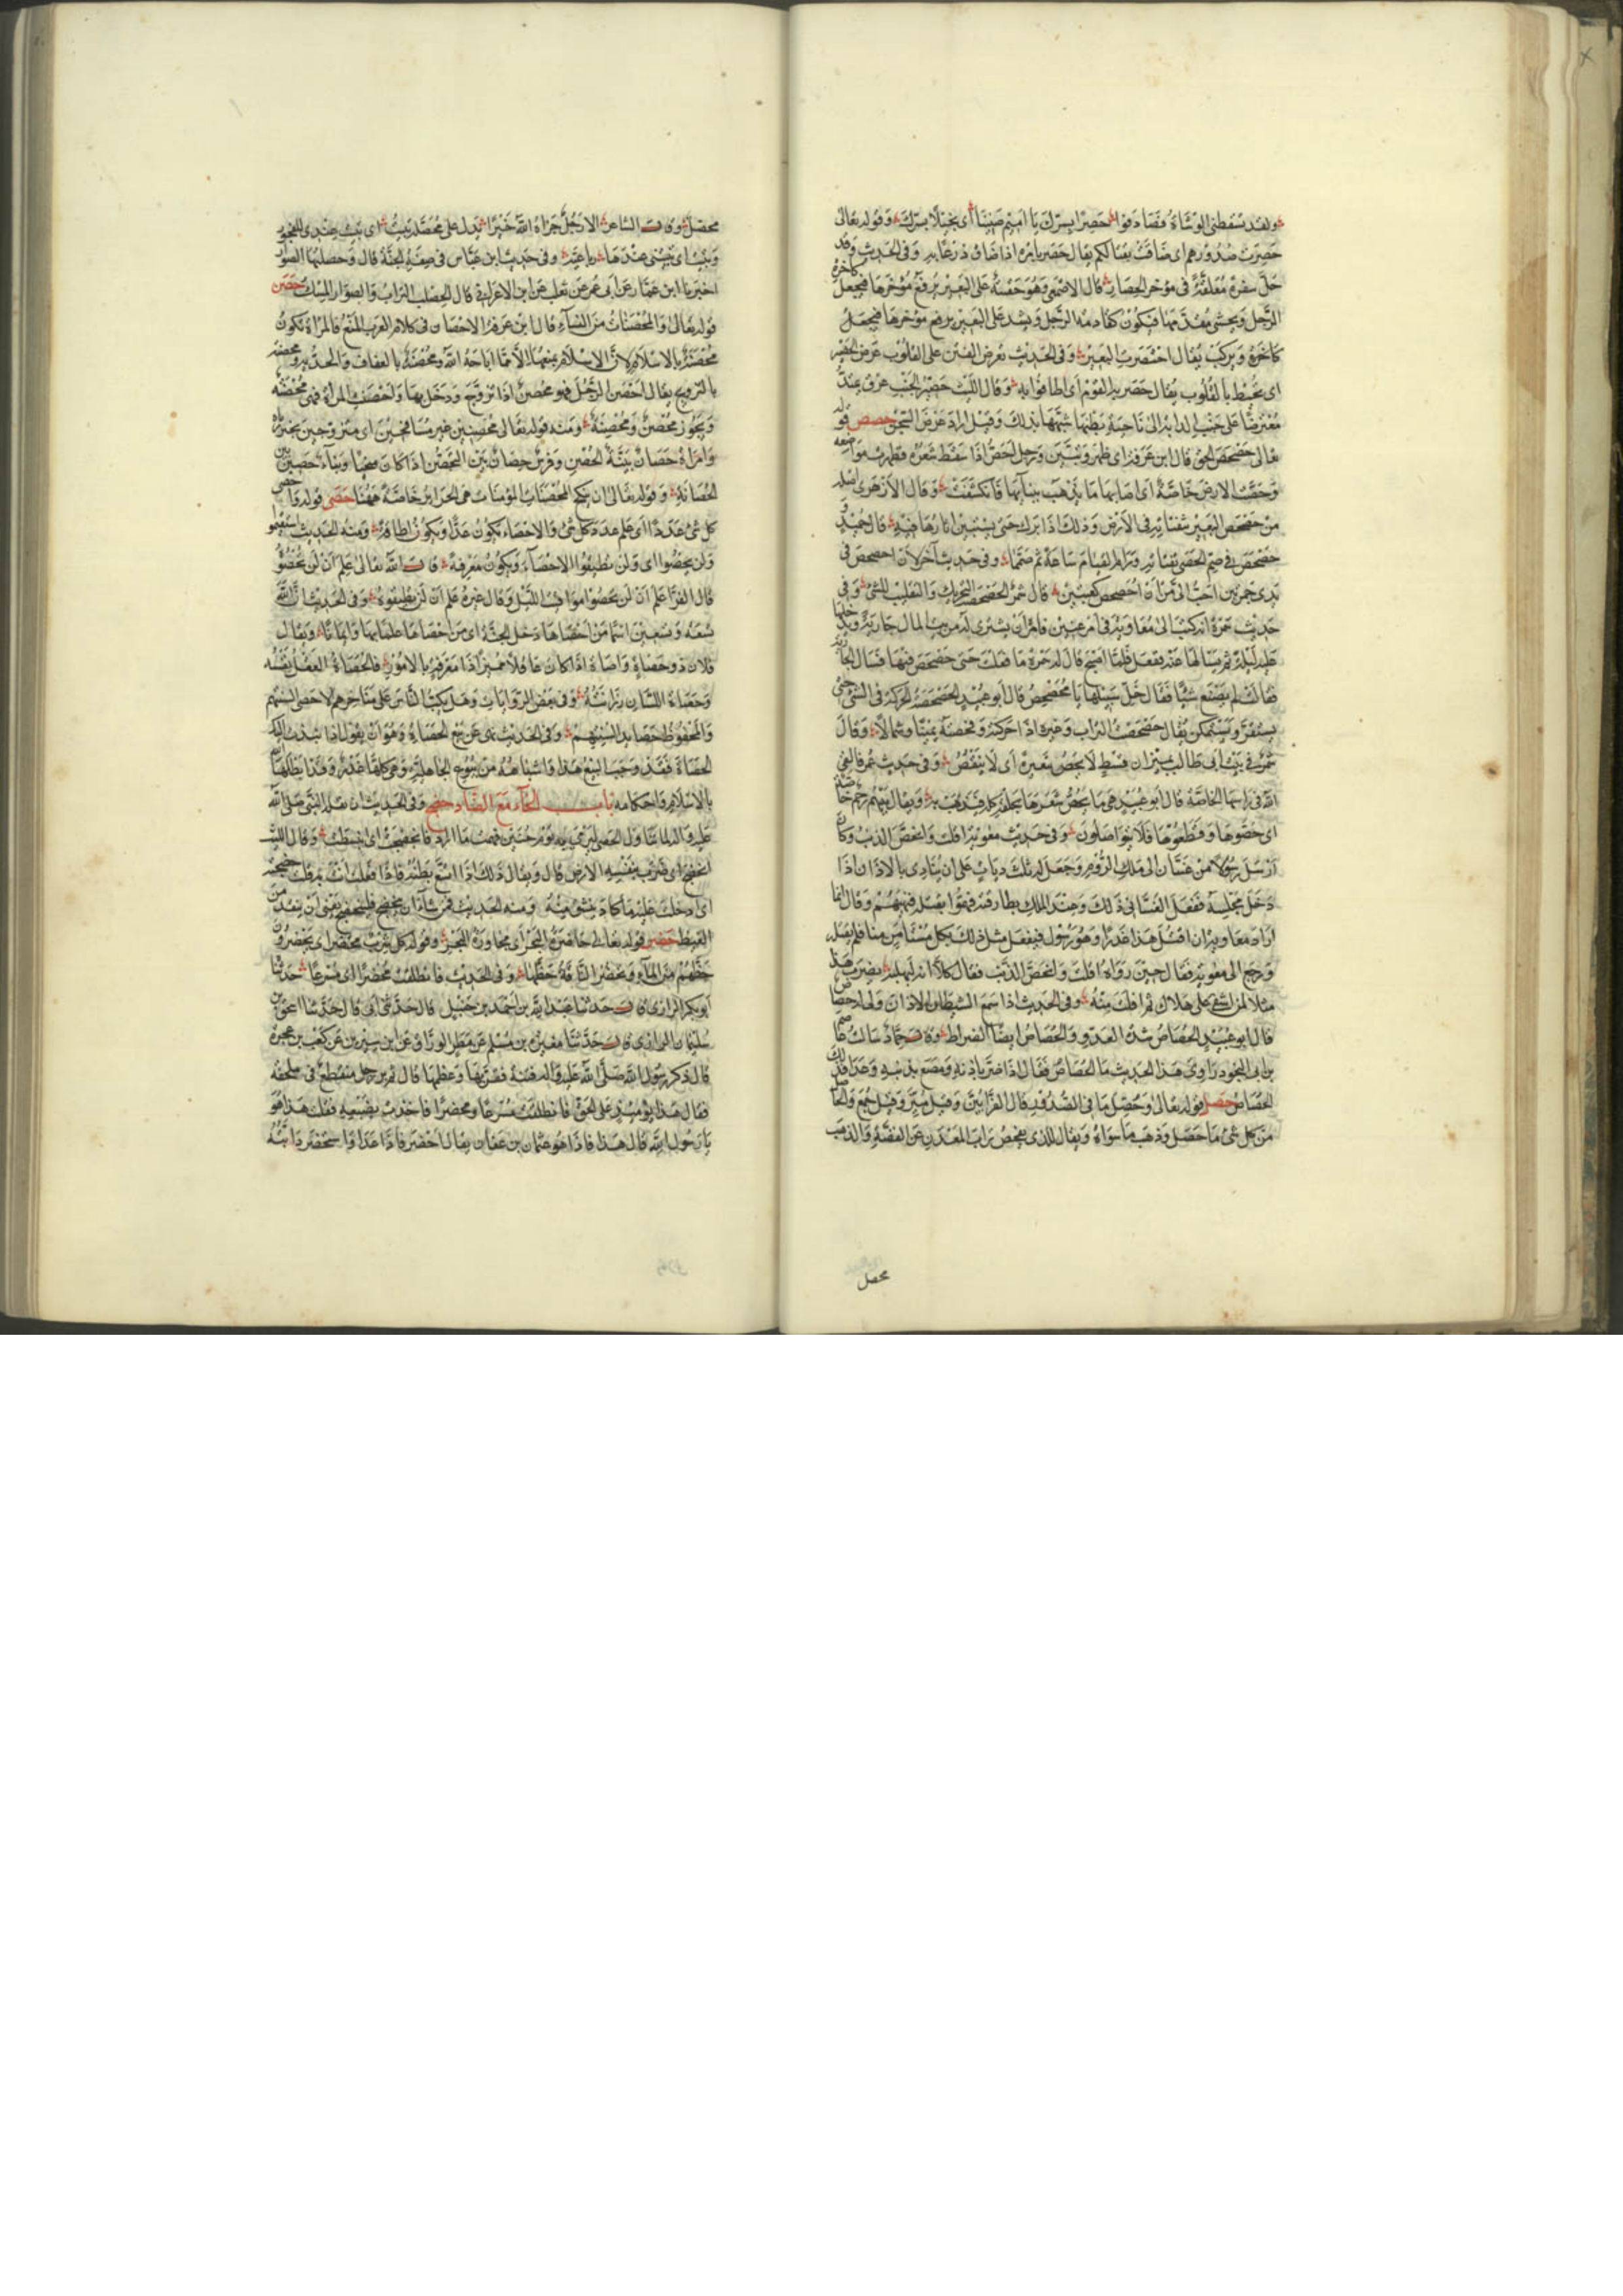 ولقد تسقطني الوشاة فصادفوا حصرا بسرك يا اميم ضنينا أي بخيلا بسرك وقوله تعالى
حصرت صدورهم اي ضاقت بقتالكم يقال حصر بامره اذا ضاق ذرعا به وفي الحديث وقد
حل سفرة معلقة في مؤخر الحصار قال الاصمعي وهو حقيبة على البعير يرفع مؤخرها فيجعل كآخرة
الرحل ويحشى مقدمها فيكون كقادمة الرحل ويشد على البعير يرفع مؤخرها فيجعل
كآخره ويركب يقال احتصرت البعير وفي الحديث تعرض الفتن على القلوب عرض الحصير
اي تحيط بالقلوب يقال حصر به القوم أي اطافوا به وقال الليث حصير الجنب عرق يمتد
معترضا على جنب الدابة الى ناحية بطنها شبهها بذلك وقيل اراد عرض السجن حصص قوله
تعالى حصحص الحق قال ابن عرفة اي ظهر وتبين ورجل احص اذا سقط شعره فظهرت مواضعه
وحصت الارض خاصة أي اصابها ما يذهب بنباتها فانكشفت وقال الازهري اصله
من حصحص البعير بثفناته في الأرض وذلك اذا برك حتى يستبين اثارها فيه قال حميد
حصحص في صم الحصى ثفناته ورام القيام ساعة ثم صمما وفي حديث آخر لأن احصحص في
يدي جمرتين احب الى من أن احصحص كعبتين قال شمر الحصحصة التحريك والتقليب للشئ وفي
حديث سمرة انه كتب الى معاوية في امر عنين فامر ان يشتري له من بيت المال جارية ويدخلها
عليه ليلة ثم يسالها عنه ففعل فلما اصبح قال له سمرة ما فعلت قال فعلت حتى حصحص فيها فسال الجارية
فقالت لم يصنع شيا فقال خل سبيلها يا محصحص قال ابو عبيد الحصحصة الحركة في الشئ حتى
يستقر ويستمكن يقال حصحصت التراب وغيره اذا حركته وفحصته يمينا وشمالا وقال
شعر في بيت ابي طالب بميزان قسط لا يحص شعيرة أي لا ينقص وفي حديث عمر فالقى
الله في راسها الحاصة قال ابو عبيد هي ما يحص شعرها يحلقه كله فيذهب به ويقال بينهم رحم حاصة
اي حصوها وقطعوها فلا يتواصلون وفي حديث معوية افلت وانحص الذنب وكان
ارسل رسولا من غسان الى ملك الروم وجعل له ثلث ديات على ان ينادي بالاذان اذا
دخل مجلسه ففعل الغساني ذلك وعند الملك بطارقته فهموا بقتله فنهيهم وقال انما
اراد معاوية ان اقتل هذا غدرا وهو رسول فيفعل مثل ذلك بكل مستامن منا فلم يقتله
ورجع الى معوية فقال حين رواه افلت وانحص الذنب فقال كلا انه لبهلبه يضرب هذا
مثلا لمن اشفى على هلاك ثم افلت منه وفي الحديث اذا سمع الشيطان الاذان ولى له حصاص
قال ابو عبيد الحصاص شدة العدو والحصاص ايضا الضراط وقال حماد سالت عاصم
بن ابي النجود راوي هذا الحديث ما الحصاص فقال اذا صر باذنه ومصع بذنبه وعدا فذلك
الحصاص حصل قوله تعالى وحصل ما في الصدور قال الفراء بين وقيل ميز وقيل جمع والحاصل
من كل شئ ما حصل وذهب ما سواه ويقال للذي يفحص تراب المعدن عن الفضة والذهب
محصل
محصل وقال الشاعر الا رجل جزاه الله خيرا يدل على محصلة تبيت أي تبيت عندي للفجور
وتبيت اي تبيتني عندها باعية وفي حديث ابن عباس في صفة الجنة قال وحصلبها الصوار
اخبرنا ابن عمار عن ابي عمر عن ثعلب عن ابن الاعرابي قال الحصلب التراب والصوار المسك حصن
قوله تعالى والمحصنات من النساء قال ابن عرفة الاحصان في كلام العرب المنع فالمراة تكون
محصنة بالاسلام لان الاسلام يمنعها الا مما اباحه الله ومحصنة بالعفاف والحرية ومحصنة
بالتزويج يقال احصن الرجل فهو محصن اذا تزوج ودخل بها واحصنت المراة فهي محصنة
ويجوز محصن ومحصنة ومنه قوله تعالى محصنين غير مسافحين اي متزوجين غير زناة
وامراة حصان بينة الحصن وفرس حصان بين التحصن اذا كان منجبا وبناء حصين بين
الحصانة وقوله تعالى ان ينكح المحصنات المؤمنات هن الحرائر خاصة ههنا حصى قوله واحصى
كل شئ عددا أي علم عدد كل شئ والاحصاء يكون عدا ويكون اطاقة ومنه الحديث استقيموا
ولن تحصوا اي ولن تطيقوا الاحصاء ويكون معرفة قال الله تعالى علم ان لن تحصوه
قال الفراء علم ان لن تحصوا مواقيت الليل وقال غيره علم ان لن تطيقوه وفي الحديث ان لله
تسعة وتسعين اسما من احصاها دخل الجنة اي من احصاها علما بها وايمانا ويقال
فلان ذو حصاة واصاة اذا كان عاقلا مميزا ذا معرفة بالامور فالحصاة العقل نفسه
وحصاة اللسان رزانته وفي بعض الروايات وهل يكب الناس على مناخرهم الا حصى السنتهم
والمحفوظ حصائد السنتهم وفي الحديث نهى عن بيع الحصاة وهو ان يقول اذا نبذت اليك
الحصاة فقد وجب البيع هذا واشباهه من بيوع الجاهلية وهي كلها غدر وقد ابطلها الله
بالاسلام واحكامه باب الحاء مع الضاد حضج وفي الحديث ان بغلة النبي صلى الله
عليه واله لما تناول الحصى ليرمي به يوم حنين فهمت ما اراد فانحضجت اي انبسطت وقال الليث
انحضج اي ضرب بنفسه الارض قال ويقال ذلك اذا اتسع بطنه فاذا فعلت انت به قلت حضجته
اي ادخلت عليه ما كاد ينشق منه ومنه الحديث فمن شاء ان ينحضج فلينحضج يعني ان ينقد من
الغيظ حضر قوله تعالى حاضرة البحر أي مجاورة البحر وقوله كل شرب محتضر اي يحضرون
حظهم من الماء وتحضر الناقة حظها وفي الحديث فانطلقت محضرا اي مسرعا حدثنا
ابو بكر الرازي قال حدثنا عبد الله بن احمد بن حنبل قال حدثني ابي قال حدثنا اسحق بن
سليمان الرازي قال حدثنا مغيرة بن مسلم عن مطر الوراق عن ابن سيرين عن كعب بن عجرة
قال ذكر رسول الله صلى الله عليه واله فتنة فقربها وعظمها قال ثم مر رجل متقنع في ملحفة
فقال هذا يومئذ على الحق فانطلقت مسرعا ومحضرا فاخذت بضبعيه فقلت هذا هو
يا رسول الله قال هذا فاذا هو عثمان بن عفان يقال احضر فاذا عدا واستحضر دابته